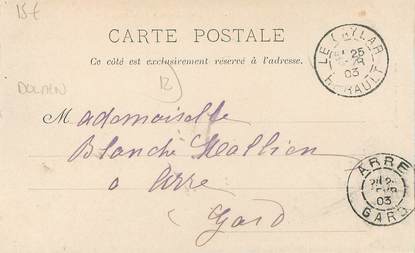 15€
CARTE POSTALE
Ce côté est exclusivement réservé à l'adresse.
LE CAYLAR
25
03
HÉRAULT
DOLMEN
12
Mademoiselle
Blanche Mallien
à Arre
Gard
ARRE
03
GARD